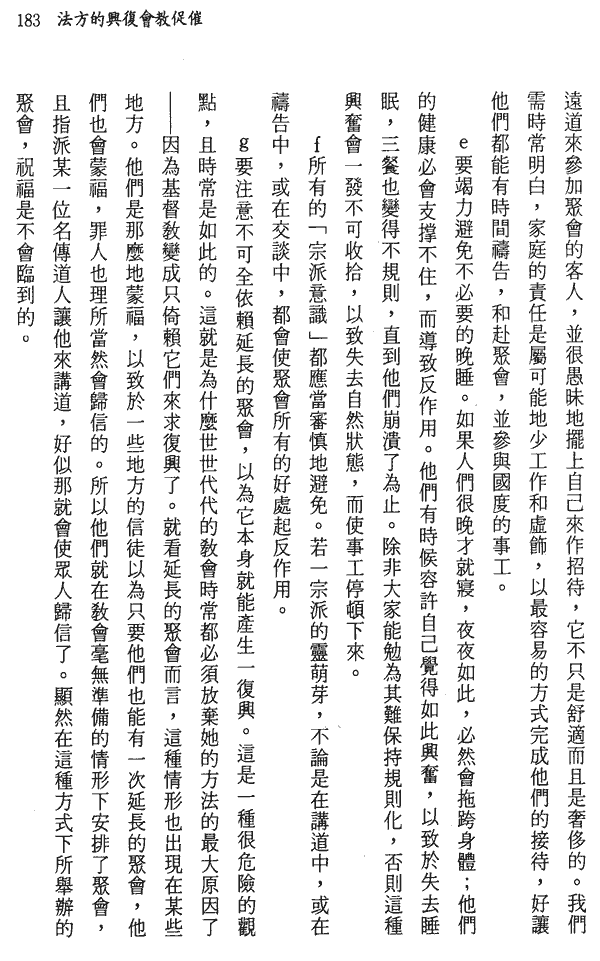 183 法方的興復會教促催
遠道來參加聚會的客人，並很愚昧地擺上自己來作招待，它不只是舒適而且是奢侈的。我們
需時常明白，家庭的責任是屬可能地少工作和虛飾，以最容易的方式完成他們的接待，好讓
他們都能有時間禱告，和赴聚會，並參與國度的事工。
e要竭力避免不必要的晚睡。如果人們很晚才就寢，夜夜如此，必然會拖跨身體；他們
的健康必會支撐不住，而導致反作用。他們有時候容許自己覺得如此興奮，以致於失去睡
眠，三餐也變得不規則，直到他們崩潰了為止。除非大家能勉為其難保持規則化，否則這種
興奮會一發不可收拾，以致失去自然狀態，而使事工停頓下來。
f所有的「宗派意識」都應當審慎地避免。若一宗派的靈萌芽，不論是在講道中，或在
禱告中，或在交談中，都會使聚會所有的好處起反作用。
g要注意不可全依賴延長的聚會，以為它本身就能產生一復興。這是一種很危險的觀
點，且時常是如此的。這就是為什麼世世代代的教會時常都必須放棄她的方法的最大原因了
——因為基督教變成只倚賴它們來求復興了。就看延長的聚會而言，這種情形也出現在某些
地方。他們是那麼地蒙福，以致於一些地方的信徒以為只要他們也能有一次延長的聚會，他
們也會蒙福，罪人也理所當然會歸信的。所以他們就在教會毫無準備的情形下安排了聚會，
且指派某一位名傳道人讓他來講道，好似那就會使眾人歸信了。顯然在這種方式下所舉辦的
聚會，祝福是不會臨到的。